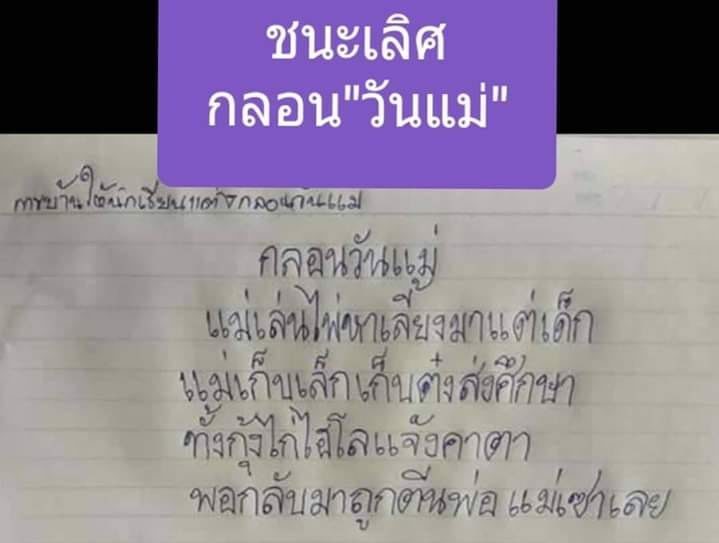 ชนะเลิศ
กลอน"วันแม่"
การบ้านให้นักเรียนแต่งกลอนวันแม่
กลอนวันแม่
แม่เล่นไพ่หาเลี้ยงมาแต่เด็ก
แม่เก็บเล็กเก็บต๋งส่งศึกษา
ทั้งกุ้งไก่ไฮโลแจ้งคาตา
พอกลับมาถูกตีนพ่อ แม่เซาเลย